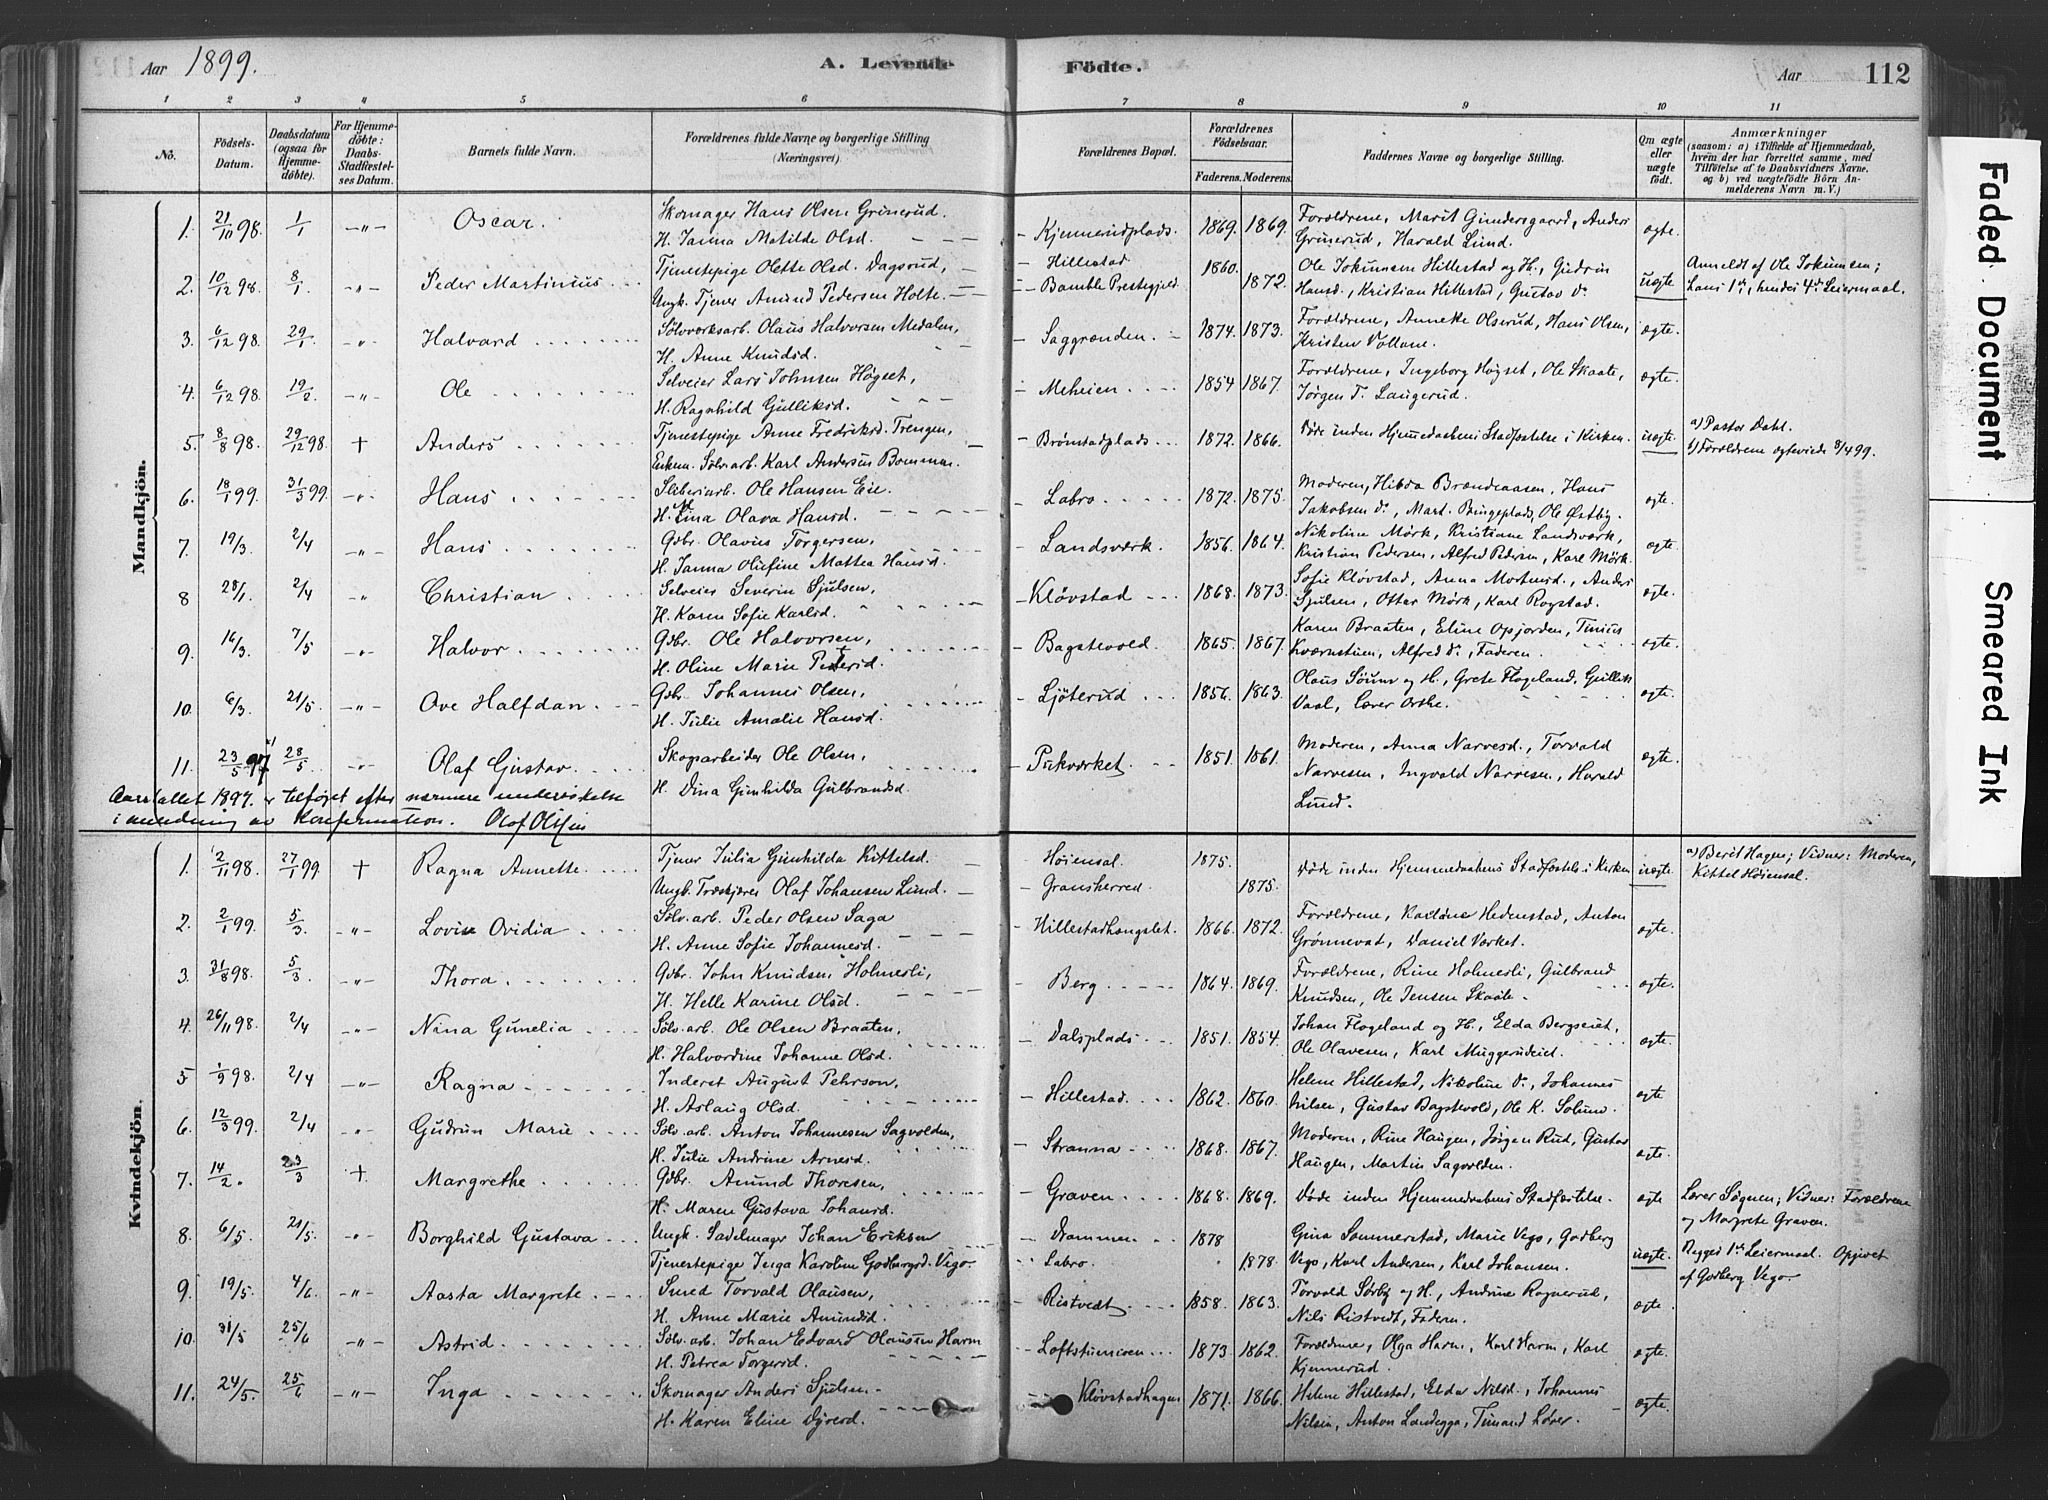 Aar 1899.
A. Levende Födte.
Aar
112
1 2 3 4 5 6 7 8 9 10 11
No.
Födsels-Datum.
Daabsdatum (ogsaa for Hjemme-döbte).
For Hjemme-döbte: Daabs-Stadfestel-ses Datum.
Barnets fulde Navn.
Forældrenes fulde Navne og borgerlige Stilling (Næringsvei).
Forældrenes Bopæl.
Forældrenes Födselsaar.
Faderens. Moderens.
Faddernes Navne og borgerlige Stilling.
Om ægte eller uægte födt.
Anmærkninger
(saasom: a) i Tilfælde af Hjemmedaab,
hvem der har forrettet samme, med
Tilföielse af to Daabsvidners Navne.
og b) ved uægtefödte Börn An-
melderens Navn m. V.)
Mandkjön.
1. 21/10 98. 1/1 -"- Oscar. Skomager Hans Olsen Grinerud. H. Janna Matilde Olsd. Kjennerudplads. 1869. 1869. Forældrene, Marit Gundersgaard, Anders Grinerud, Harald Lund. ægte.
2. 10/12 98. 8/1 -"- Peder Martinius Tjenestepige Olette Olsd. Dagsrud, Ungk. Tjener Amund Pedersen Holte. Hillestad Bamble Prestegjeld 1860. 1872. Ole Jokumsen Hillestad og H., Gudrun Hansd., Kristian Hillestad, Gustav do. uægte Anmeldt af Ole Jokumsen; hans 1ste, hendes 4de Leiermaal.
3. 6/12 98. 29/1 -"- Halvard Sölvværksarb. Olaus Halvorsen Medalen, H. Anne Knudsd. Saggrænden. 1874. 1873. Forældrene, Anneke Olserud, Hans Olsen, Kristen Vollane. ægte.
4. 6/12 98. 19/2 -"- Ole Selveier Lars Johnsen Högset, H. Ragnhild Gulliksd. Meheien 1854 1867. Forældrene, Ingeborg Högset, Ole Skaate, Jörgen T. Laugerud. ægte.
5. 8/8 98. 29/12 98. + Anders Tjenestepige Anne Fredriksd. Trengen, Enkem. Sölv.arb. Karl Andersen Bommen. Brömstadplads 1872. 1866. Döde inden Hjemmedaabens Stadfæstelse i Kirken. uægte. a) Pastor Dahl. b) Forældrene ægteviede 8/4 99.
6. 18/1 99. 31/3 99. -"- Hans Sliberiarb. Ole Hansen Eie. H. Lina Olava Hansd. Labro 1872. 1875. Moderen, Hilda Brændaasen, Hans Jakobsen do, Mart. Bingeplads, Ole Östby. ægte
7. 19/3. 2/4 -"- Hans Gdbr. Olavus Torgersen, H. Janna Oliefine Mattea Hansd. Landsværk. 1856. 1864. Nikoline Mörk, Kristiane Landsværk, Kristian Pedersen, Alfred Pedersen, Karl Mörk. ægte.
8 28/1. 2/4 -"- Christian Selveier Severin Sjulsen, H. Karen Sofie Karlsd. Klövstad 1868. 1873. Sofie Klövstad, Anna Mortensd., Anders Sjulsen, Otter Mörk, Karl Rogstad. ægte.
9. 16/3. 7/5 -"- Halvor Gdbr. Ole Halvorsen, H. Oline Marie Pedersd. Bagstevold 1865. 1867. Karen Braaten, Eline Opjorden, Tinius Kværnstuen, Alfred do., Faderen. ægte.
10. 6/3. 21/5 -"- Ove Halfdan Gdbr. Johannes Olsen, H. Julie Amalie Hansd. Ljöterud 1856. 1863. Olaus Solum og H., Grete Flogeland, Gullik Vaal, Lærer Orthe. ægte.
11. 23/5 97 28/5 -"- Olaf Gustav Skogarbeider Ole Olsen, H. Dina Gunhilda Gulbrandsd. Pukværket 1851. 1861. Moderen, Anna Narvesd., Torvald Narvesen, Ingvald Narvesen, Harald Lund. ægte.
Aarstallet 1897. er tilföiet efter nærmere undersökelse
i anledning av Konfirmation.
Kvindekjön.
1. 2/11 98. 27/1 99 + Ragna Annette Tjener Julia Gunhilda Kittelsd. Ungk. Træskjærer Olaf Johansen Lund. Höiensal. Gransherred. 1875. 1875. Döde inden Hjemmedaabens Stadfæstelse i Kirken uægte a) Berit Hagen; Vidner: Moderen, Kittel Höiensal.
2. 2/1 99. 5/3 -"- Lovise Ovidia Sölv.arb. Peder Olsen Saga H. Anne Sofie Johannesd. Hillestadhougslet. 1866. 1872. Forældrene, Karoline Hedenstad, Anton Grönnevat, Daniel Værket. ægte.
3. 31/8 98. 5/3 -"- Thora Gdbr. John Knudsen Holmesli, H. Helle Karine Olsd. Berg 1864. 1869. Forældrene, Rine Holmesli, Gulbrand Knudsen, Ole Jensen Skaale. ægte.
4. 26/11 98. 2/4 -"- Nina Gunelia Sölv.arb. Ole Olsen Braaten, H. Halvordine Johanne Olsd. Dalsplads 1851. 1854. Johan Flogeland og H., Elda Bergseiet, Ole Olavesen, Karl Muggerudeid. ægte.
5 1/9 98. 2/4 -"- Ragna Inderst August Pehrson, H. Aslaug Olsd. Hillestad. 1862. 1860. Helene Hillestad, Nikoline do., Johannes Nilsen, Gustav Bagstevold, Ole K. Solum. ægte
6. 12/3 99. 2/4 -"- Gudrun Marie Sölv.arb. Anton Johannesen Sagvolden, H. Julie Andrine Arnesd. Stranna 1868. 1867. Moderen, Rine Haugen, Jörgen Rud, Gustav Haugen, Martin Sagvolden. ægte.
7. 14/2. 23/3 + Margrethe Gdbr. Amund Thoresen, H. Maren Gustava Johansd. Graven 1868. 1869. Döde inden Hjemmedaabens Stadfæstelse. ægte Lærer Sognen; Vidner: Forældrene og Margrete Graven.
8. 6/5. 21/5. -"- Borghild Gustava Ungk. Sadelmager Johan Eriksen Tjenestepige Inga Karoline Godbergsd. Vego. Drammen Labro. 1878 1878. Gina Sommerstad, Marie Vego, Godberg Vego, Karl Andersen, Karl Johansen. uægte. Begges 1ste Leiermaal. Opgivet af Godberg Vego.
9. 19/5. 4/6 -"- Aasta Margrete Smed Torvald Olausen, H. Anne Marie Amundsd. Ristvedt 1858. 1863. Torvald Sörby og H., Andrine Rognerud, Nils Ristvedt, Faderen. ægte.
10. 31/5 25/6 -"- Astrid Sölv.arb. Johan Edvard Olausen Harm H. Petrea Torgersd. Loftstumoen 1873. 1862. Forældrene, Olga Harm, Karl Harm, Karl Kjennerud. ægte.
11. 24/5. 25/6 -"- Inga Skomager Anders Sjulsen H. Karen Eline Dyresd. Klövstadhagen 1871. 1866. Helene Hillestad, Elda Nilsd., Johannes Nilsen, Anton Landegga, Timand Löver. ægte.
Faded Document
Smeared Ink